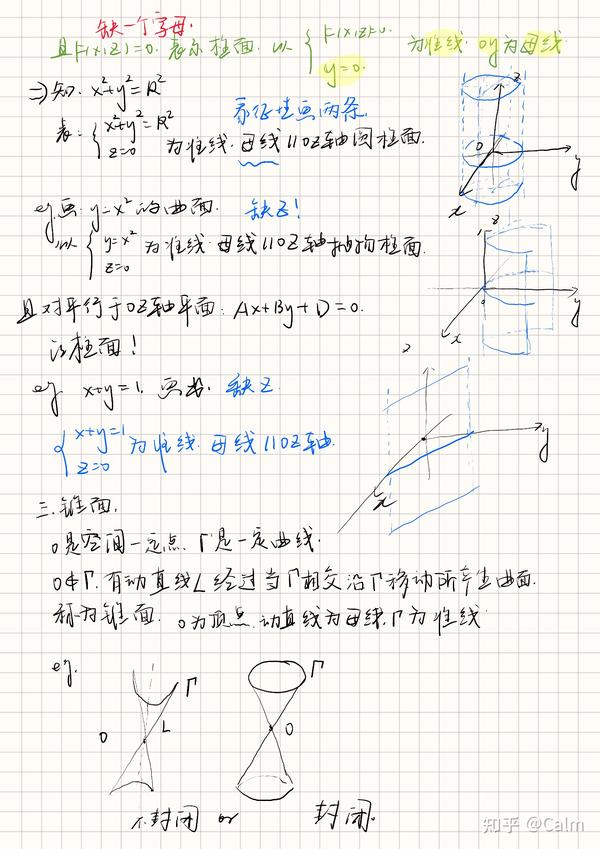 缺一个字母.
且F(x,z)=0. 表示柱面. 以 { F(x,z)=0. y=0. 为准线. oy为母线
⇒ 知. x²+y²=R²
表: { x²+y²=R² z=0 为准线. 母线//OZ轴圆柱面.
画两条.
z
O
y
x
eg.画: y=x²的曲面. 缺z!
以 { y=x² z=0 为准线. 母线//OZ轴抛物柱面.
z
o
y
x
且对平行于OZ轴平面: Ax+By+D=0.
柱面!
z
eg x+y=1. 画出. 缺z
{ x+y=1 z=0 为准线. 母线//OZ轴.
y
x
三.锥面.
O是空间一定点. Γ是一定曲线.
O∉Γ. 有动直线L经过O与Γ相交沿Γ移动所产生曲面.
称为锥面. O为顶点. 动直线为母线. Γ为准线
eg.
Γ
Γ
O
L
O
不封闭 or 封闭.
知乎 @Calm